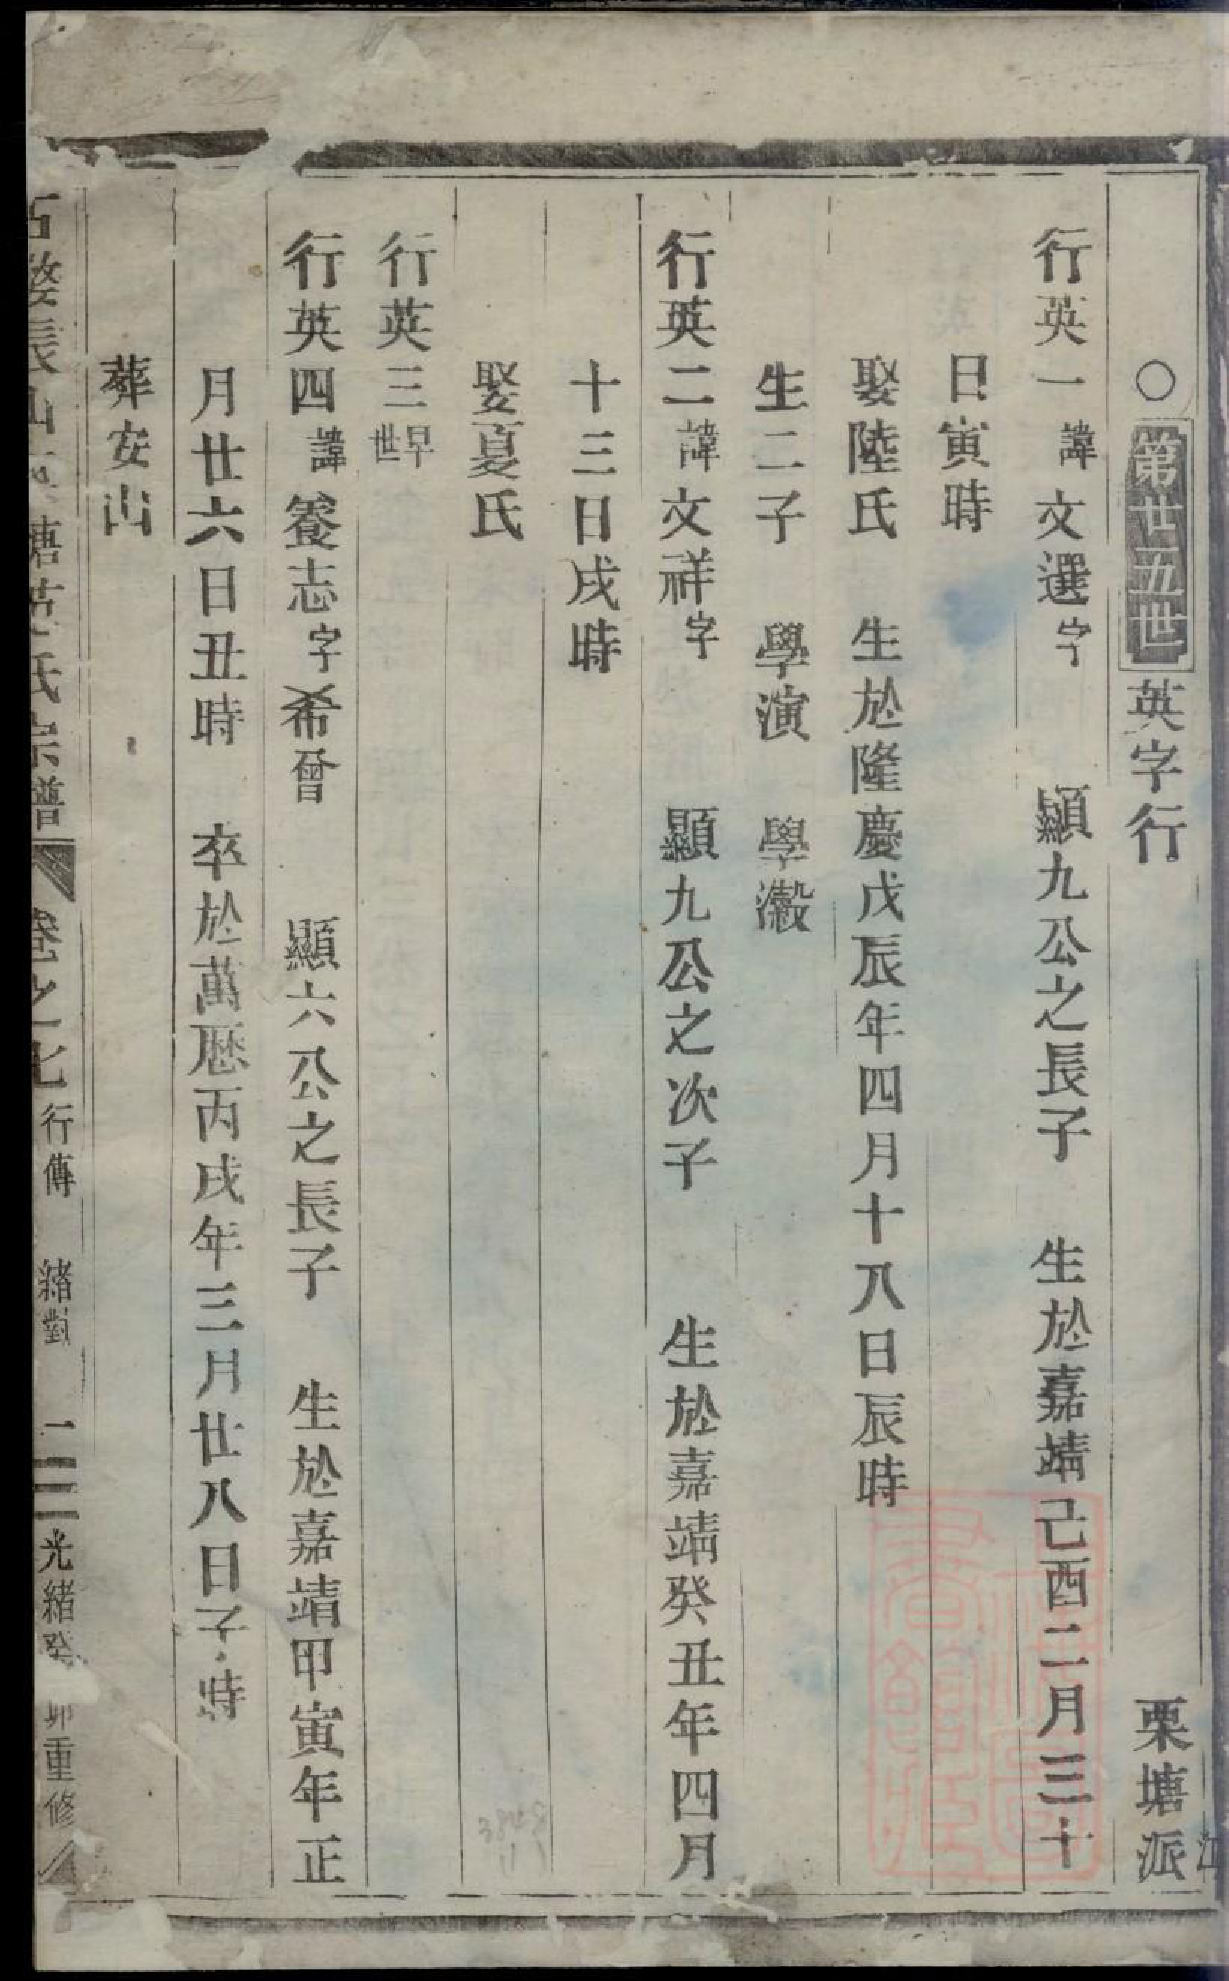 ○第廿五世英字行 栗塘派
行英一諱文選字 顯九公之長子 生於嘉靖己酉二月三十
日寅時
娶陸氏 生於隆慶戊辰年四月十八日辰時
生二子 學演 學瀫
行英二諱文祥字 顯九公之次子 生於嘉靖癸丑年四月
十三日戌時
娶夏氏
行英三早世
行英四諱養志字希曾 顯六公之長子 生於嘉靖甲寅年正
月廿六日丑時 卒於萬厯丙戌年三月廿八日子時
葬安山
塘 氏宗譜 卷之七 行傳 緒對 一 光緒癸卯重修